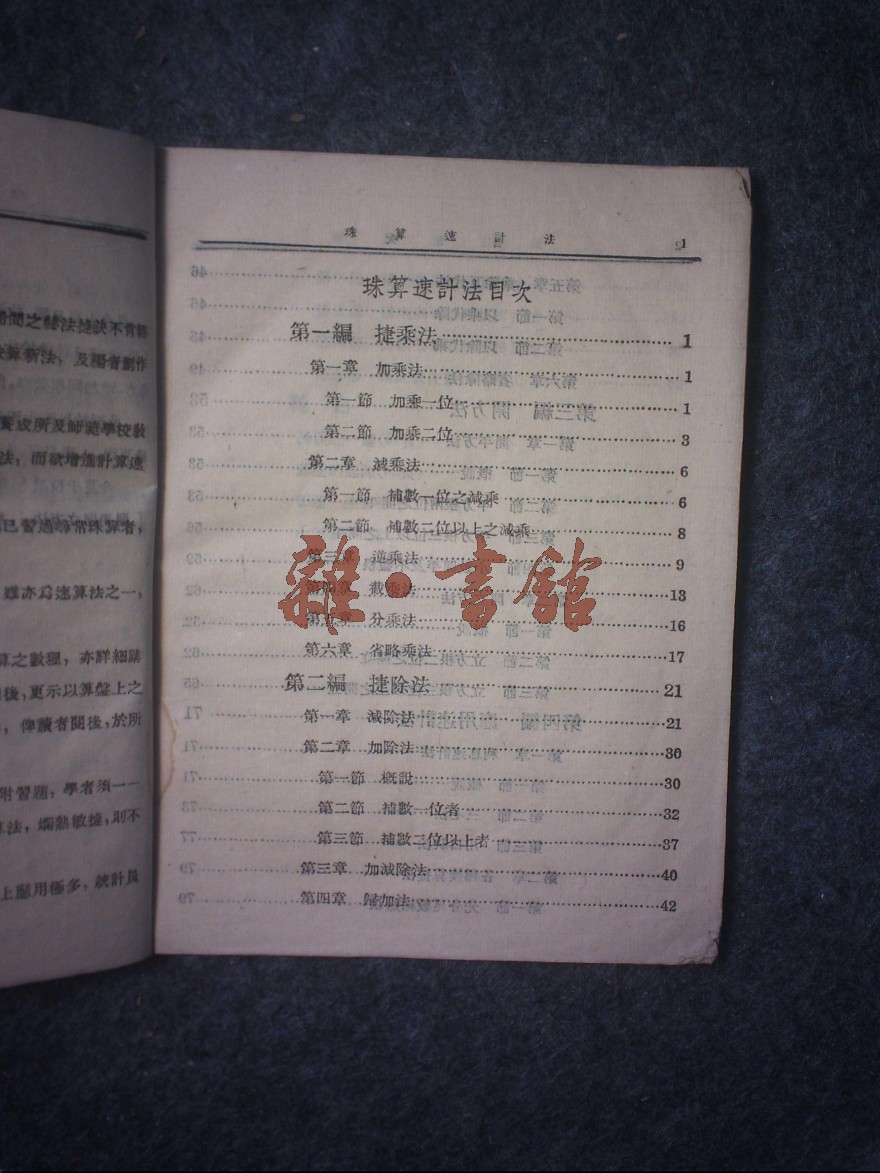 法，而欲增進計算速
已習過尋常珠算者，
雖亦爲速算法之一，
算之數理，亦詳細講
後，更示以算盤上之
俾讀者閱後，於所
附習題，學者須一一
算法，爛熟敏捷，則不
上應用極多，統計員
珠算速計法 1
珠算速計法目次
第一編 捷乘法 1
第一章 加乘法 1
第一節 加乘一位 1
第二節 加乘二位 3
第二章 減乘法 6
第一節 補數一位之減乘 6
第二節 補數二位以上之減乘 8
第三章 逆乘法 9
第四章 截乘法 13
第五章 分乘法 16
第六章 省略乘法 17
第二編 捷除法 21
第一章 減除法 21
第二章 加除法 30
第一節 概說 30
第二節 補數一位者 32
第三節 補數二位以上者 37
第三章 加減除法 40
第四章 歸加法 42
雜·書館